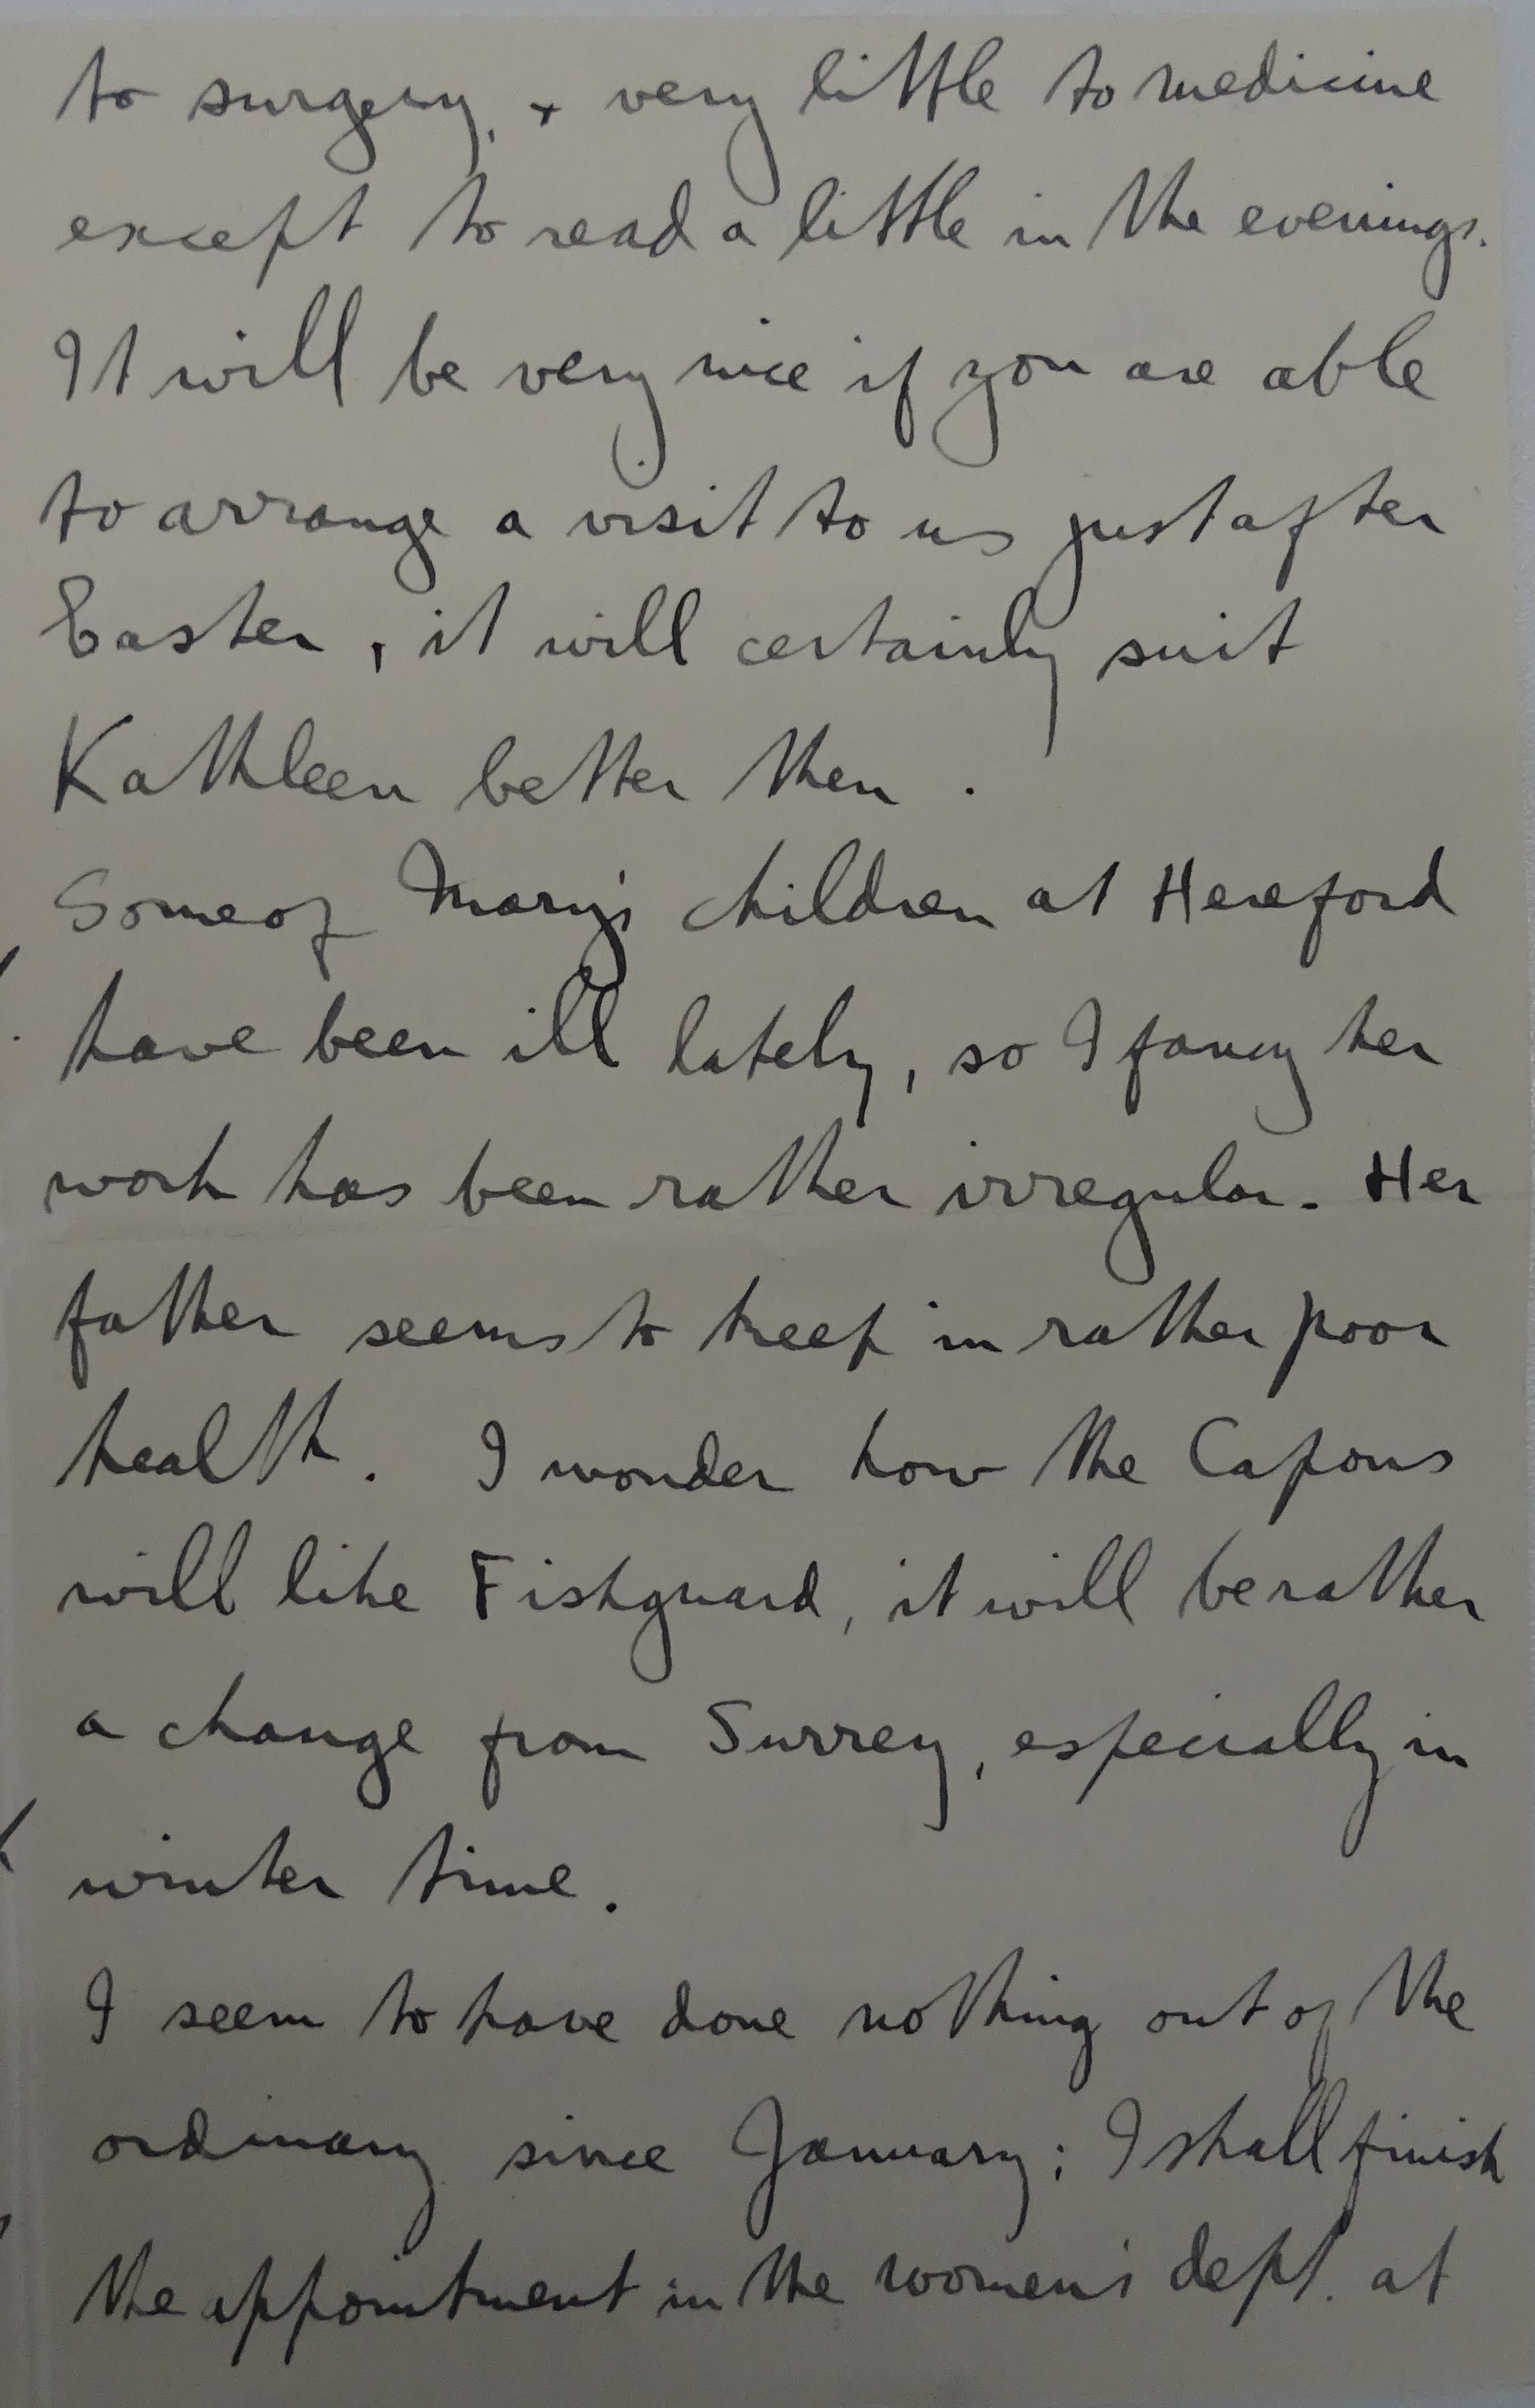 to surgery, + very little to medicine
except to read a little in the evenings.
It will be very nice if you are able
to arrange a visit to us just after
Easter, it will certainly suit
Kathleen better then.
Some of Mary's children at Hereford
have been ill lately, so I fancy her
work has been rather irregular. Her
father seems to keep in rather poor
health. I wonder how the Capons
will like Fishguard, it will be rather
a change from Surrey, especially in
winter time.
I seem to have done nothing out of the
ordinary since January; I shall finish
the appointment in the women's dept. at